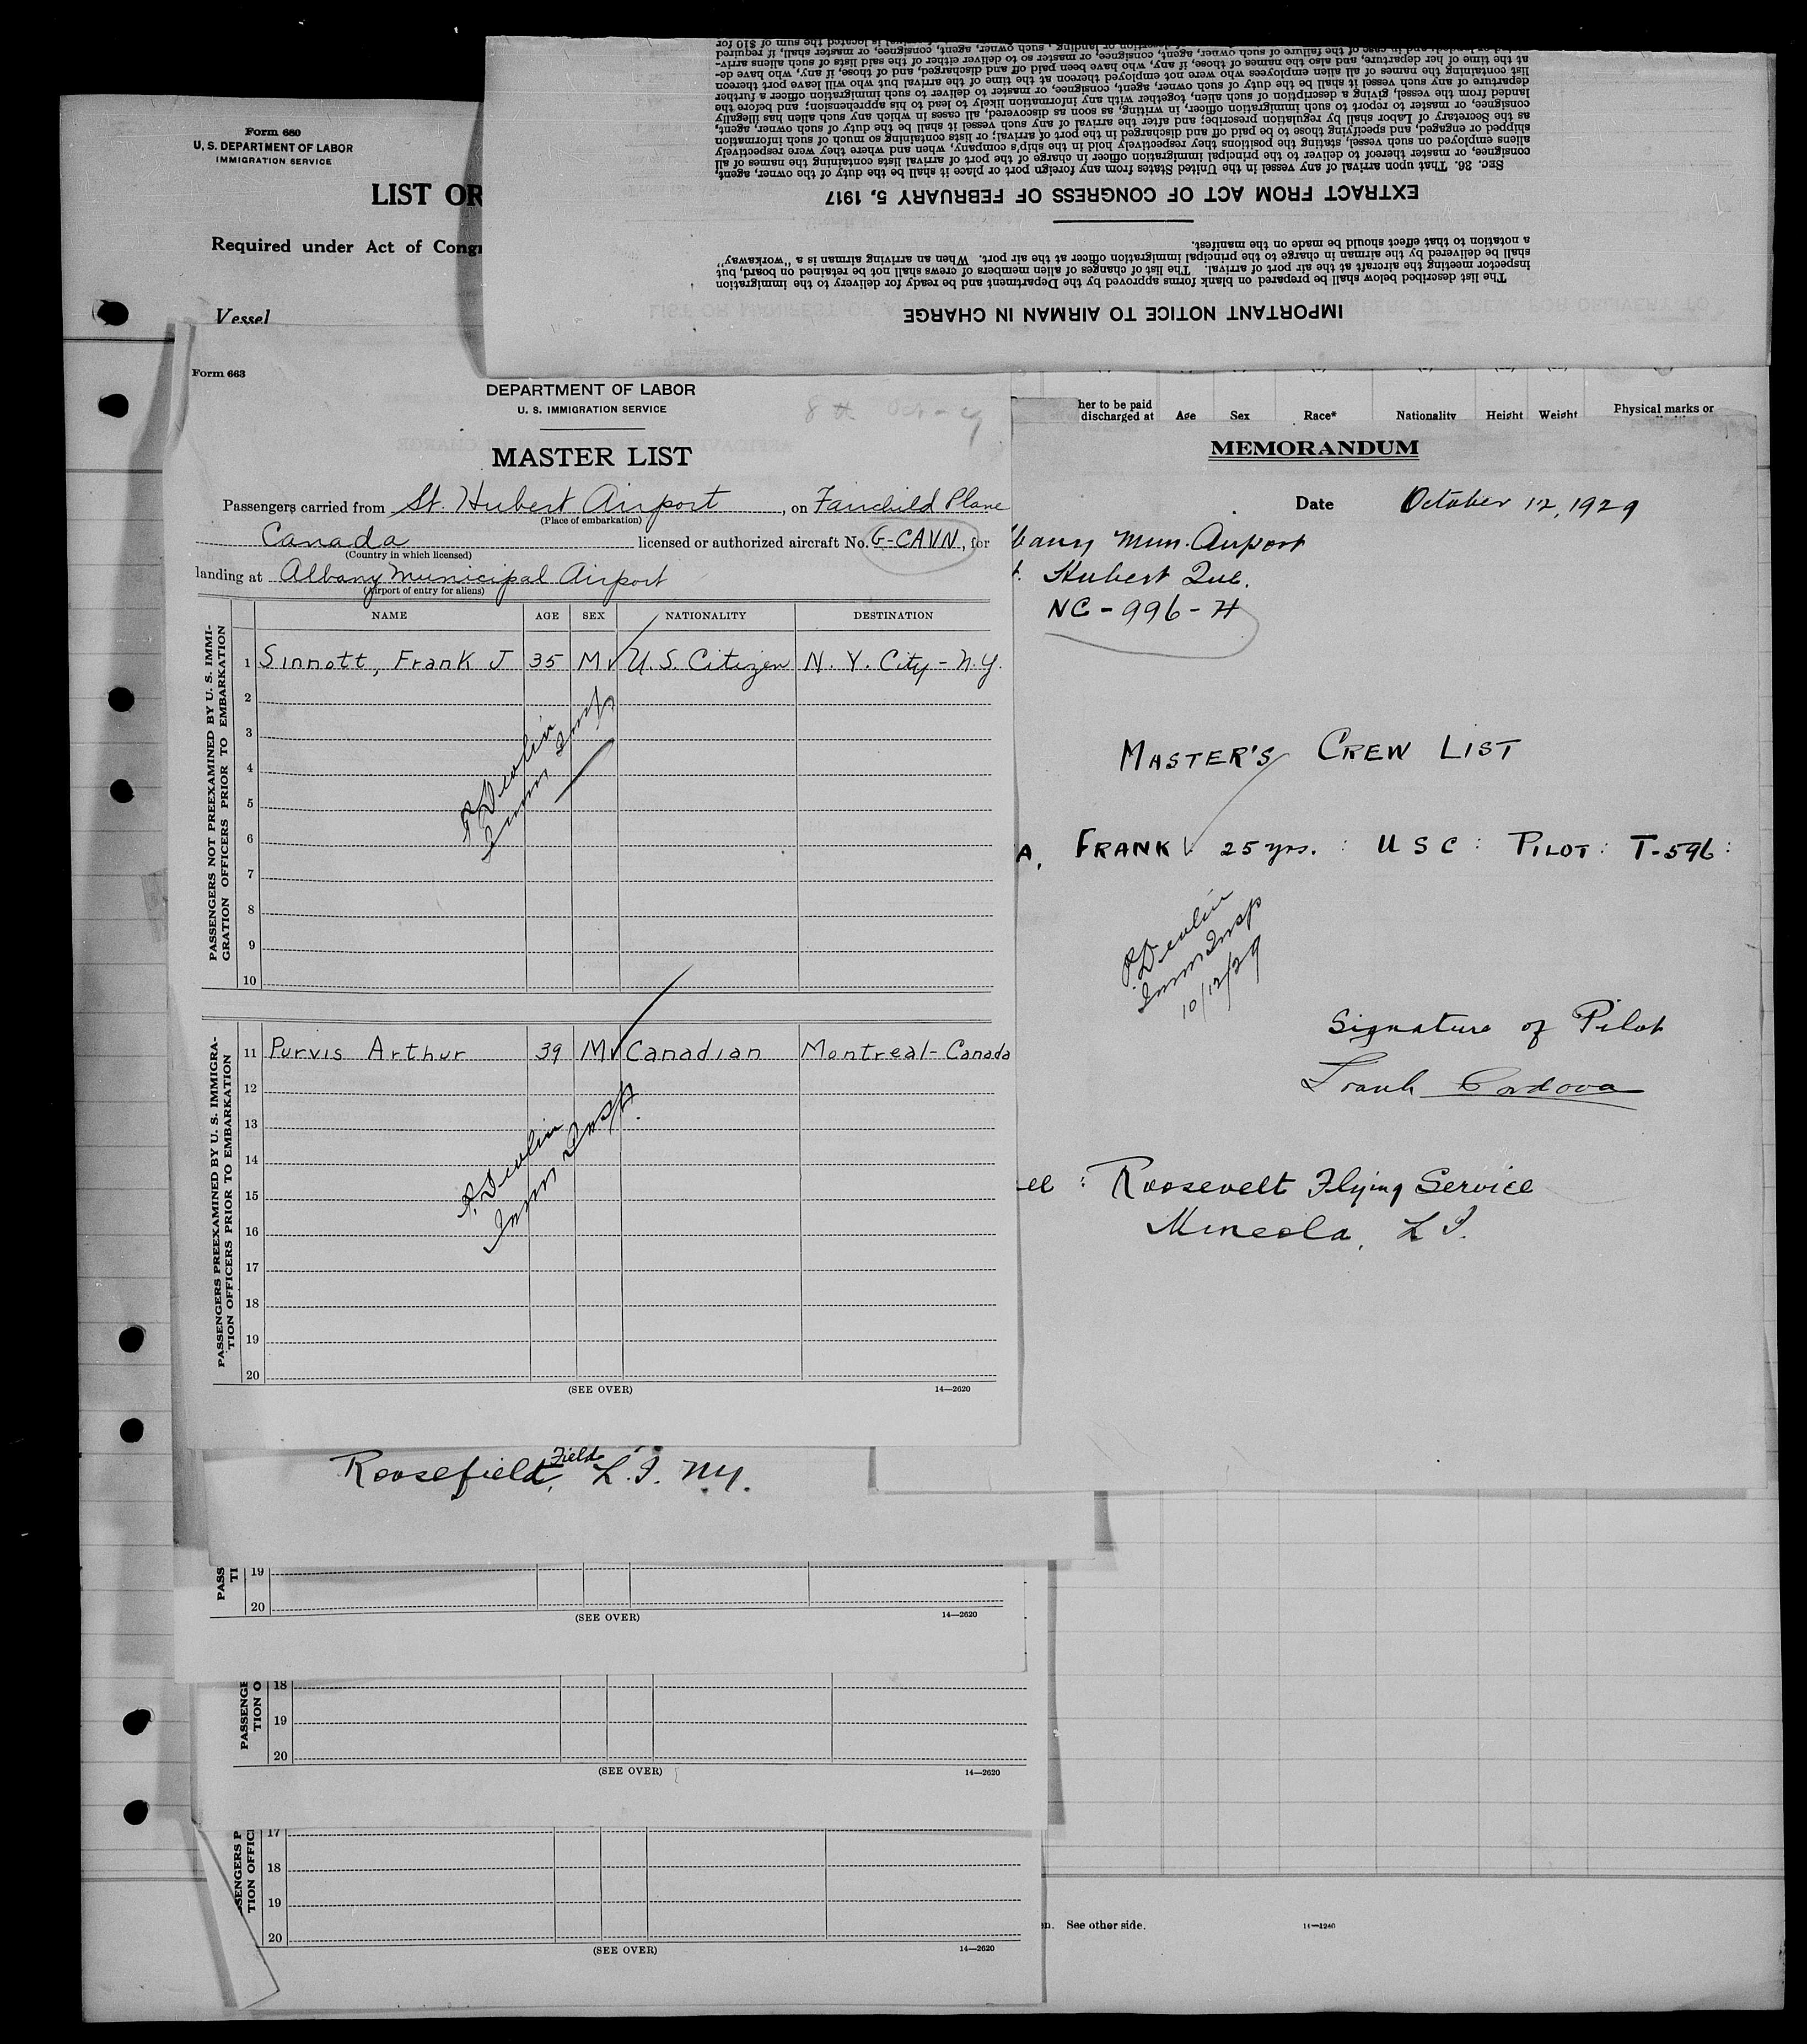 Form 680
U. S. DEPARTMENT OF LABOR
IMMIGRATION SERVICE
LIST OR
Required under Act of Congr
Vessel
IMPORTANT NOTICE TO AIRMAN IN CHARGE
The list described below shall be prepared on blank forms approved by the Department and be ready for delivery to the immigration
inspector meeting the aircraft at the air port of arrival. The list of changes of alien members of crews shall not be retained on board, but
shall be delivered by the airman in charge to the principal immigration officer at the air port. When an arriving airman is a "workaway"
a notation to that effect should be made on the manifest.
EXTRACT FROM ACT OF CONGRESS OF FEBRUARY 5, 1917
SEC. 36. That upon arrival of any vessel in the United States from any foreign port or place it shall be the duty of the owner, agent,
consignee, or master thereof to deliver to the principal immigration officer in charge of the port of arrival lists containing the names of all
aliens employed on such vessel, stating the positions they respectively hold in the ship's company, when and where they were respectively
shipped or engaged, and specifying those to be paid off and discharged in the port of arrival; or lists containing so much of such information
as the Secretary of Labor shall by regulation prescribe; and after the arrival of any such vessel it shall be the duty of such owner, agent,
consignee, or master to report to such immigration officer, in writing, as soon as discovered, all cases in which any such alien has illegally
landed from the vessel, giving a description of such alien, together with any information likely to lead to his apprehension; and before the
departure of any such vessel it shall be the duty of such owner, agent, consignee, or master to deliver to such immigration officer a further
list containing the names of all alien employees who were not employed thereon at the time of the arrival but who will leave port thereon
at the time of her departure, and also the names of those, if any, who have been paid off and discharged, and of those, if any, who have de-
serted or landed; and in case of the failure of such owner, agent, consignee, or master so to deliver either of the said lists of such aliens arriv-
Form 663
DEPARTMENT OF LABOR
U. S. IMMIGRATION SERVICE
MASTER LIST
Passengers carried from St. Hubert Airport, on Fairchild Plane
(Place of embarkation)
Canada licensed or authorized aircraft No. G-CAVN, for
(Country in which licensed)
landing at Albany Municipal Airport
(Airport of entry for aliens)
NAME AGE SEX NATIONALITY DESTINATION
PASSENGERS NOT PREEXAMINED BY U. S. IMMI-
GRATION OFFICERS PRIOR TO EMBARKATION
1 Sinnott, Frank J 35 M U.S. Citizen N. Y. City - N.Y.
2
3
4
5
6
7
8
9
10
P. Devlin
Imm Insp
PASSENGERS PREEXAMINED BY U. S. IMMIGRA-
TION OFFICERS PRIOR TO EMBARKATION
11 Purvis Arthur 39 M Canadian Montreal-Canada
12
13
14
15
16
17
18
19
20
P. Devlin
Imm Insp.
(SEE OVER) 14—2620
her to be paid
discharged at Age Sex Race* Nationality Height Weight Physical marks or
MEMORANDUM
Date October 12, 1929
bany Mun. Airport
t. Hubert Que.
NC-996-H
MASTER'S CREW LIST
A, FRANK 25 yrs. : USC : PILOT : T-596 :
P. Devlin
Imm Insp
10/12/29
Signature of Pilot
Frank Cordova
ee : Roosevelt Flying Service
Mineola, L I.
Roosefield, Field L. I. N.Y.
PASS
TI
19
20
(SEE OVER) 14—2620
PASSENGE
TION O
18
19
20
(SEE OVER) 14—2620
SENGERS P
TION OFFIC
17
18
19
20
(SEE OVER) 14—2620
n. See other side. 14—1240